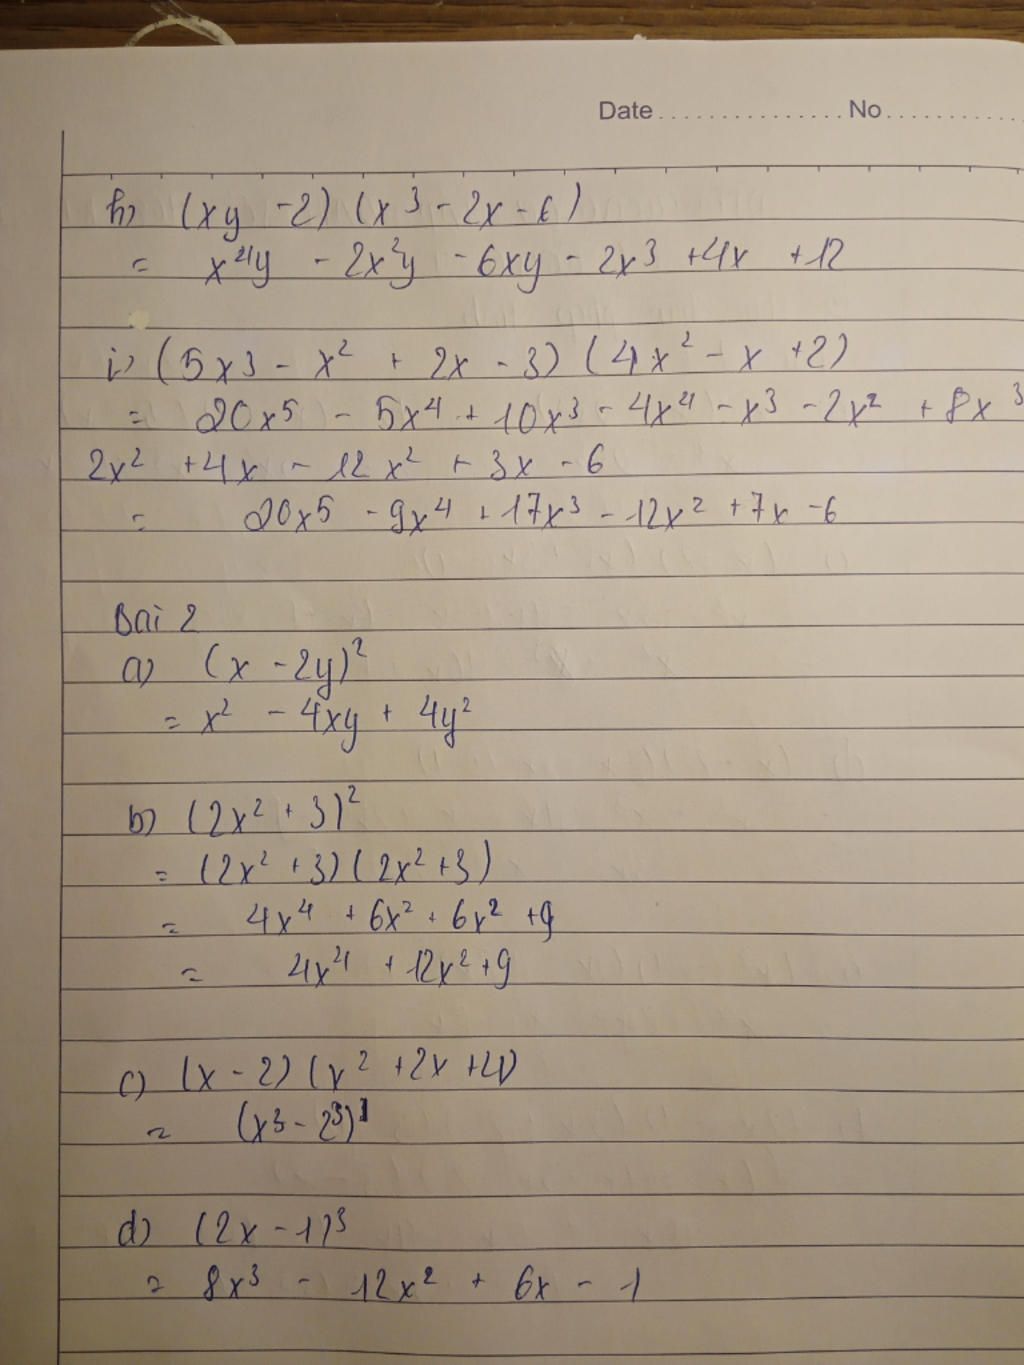 Date ............... No ............
h) (xy - 2) (x³ - 2x - 6)
= x⁴y - 2x²y - 6xy - 2x³ + 4x + 12
i) (5x³ - x² + 2x - 3) (4x² - x + 2)
= 20x⁵ - 5x⁴ + 10x³ - 4x⁴ - x³ - 2x² + 8x³
2x² + 4x - 12x² + 3x - 6
= 20x⁵ - 9x⁴ + 17x³ - 12x² + 7x - 6
Bai 2
a) (x - 2y)²
= x² - 4xy + 4y²
b) (2x² + 3)²
= (2x² + 3) (2x² + 3)
= 4x⁴ + 6x² + 6x² + 9
= 4x⁴ + 12x² + 9
c) (x - 2) (x² + 2x + 4)
= (x³ - 2³)
d) (2x - 1)³
= 8x³ - 12x² + 6x - 1